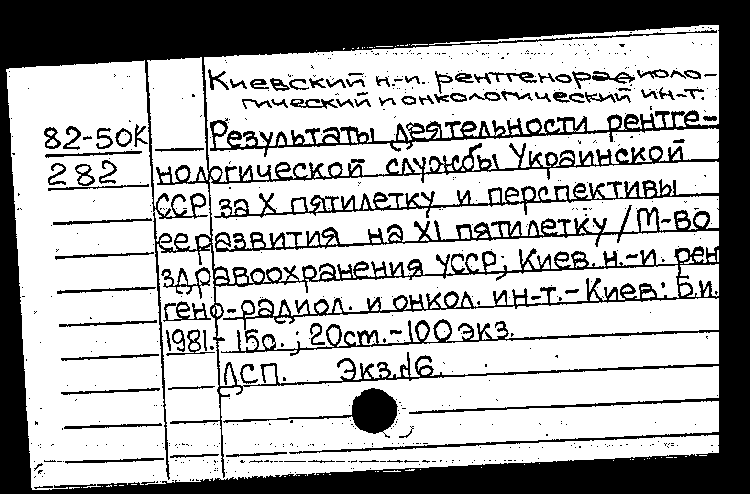 Киевский н.-и. рентгенорадиоло-
гический и онкологический ин-т.
82-50К
282
Результаты деятельности рентге-
нологической службы Украинской
ССР за X пятилетку и перспективы
ее развития на XI пятилетку / М-во
здравоохранения УССР; Киев. н.-и. рен
гено-радиол. и онкол. ин-т. - Киев: Б.и.
1981. - 15 с.; 20 ст. - 100 экз.
ДСП. Экз.